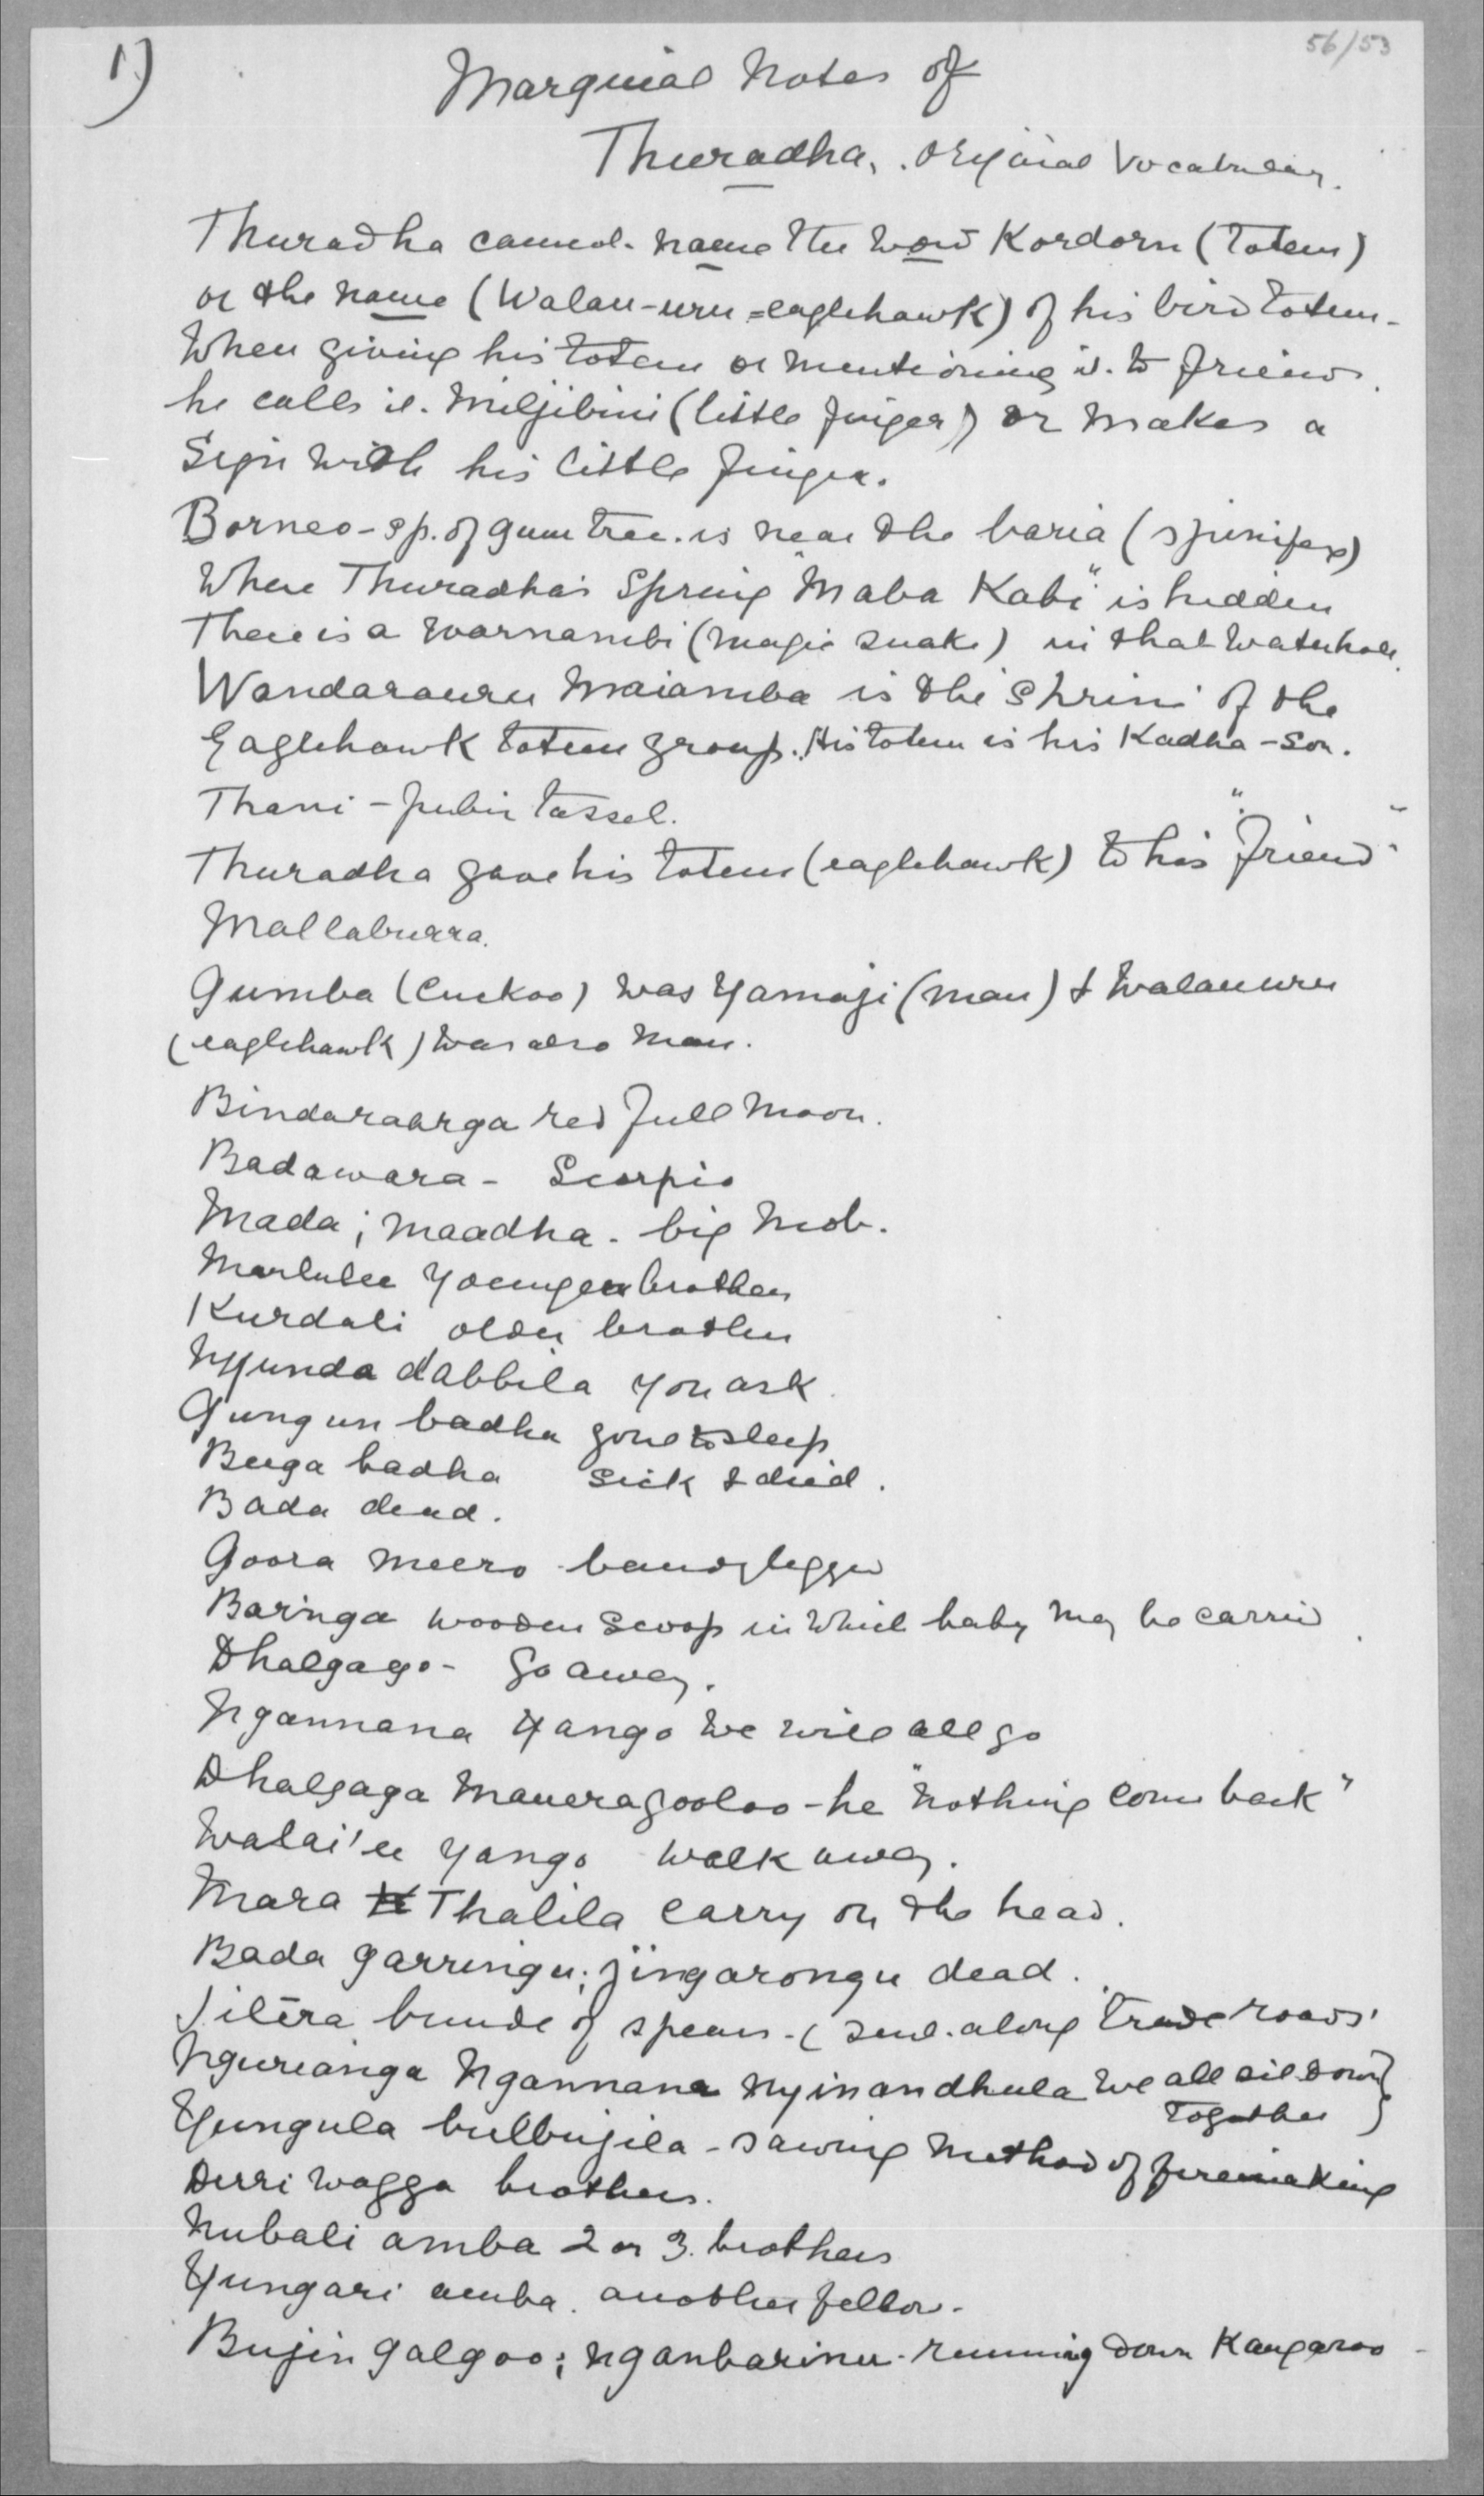 1)
56/53
Marginal Notes of
Thuradha, original Vocabulary.
Thuradha cannot name the word Kordorn (Totem)
or the name (Walau-uru = eaglehawk) of his bird totem.
When giving his totem or mentioning it to friends
he calls it Miljibini (little finger) or makes a
Sign with his little finger.
Borneo - sp. of gum tree. is near the baria (spinifex)
Where Thuradha's Spring "Maba Kabi" is hidden
There is a warnambi (magic snake) in that waterhole.
Wandarauru Maiamba is the shrine of the
Eaglehawk totem group. His totem is his Kadha - Son.
Thani - pubic tassel.
Thuradha gave his totem (eaglehawk) to his "friend"
Mallaburra.
Gumba (Cuckoo) was Yamaji (man) & Walauuru
(eaglehawk) was also man.
Bindaraarga red full moon.
Badawara - Scorpio
Mada; maadha - big mob.
Marlulu younger brother
Kurdali older brother
Nyunda dabbila you ask.
Gungun badha gone to sleep
Beega badha sick & died.
Bada dead.
Goora meero - bandy legged
Baringa wooden scoop in which baby may be carried.
Dhalgago - Go away.
Ngannana yango We will all go
Dhalgaga maueragooloo - he "nothing come back"
Walai'ee yango walk away.
Mara Thalila carry on the head.
Bada garringu; jingarongu dead.
Jilēra bundle of spears - (sent along trade roads)
Ngureanga Ngannana nyinandhula We all sit down
together
Yungula bulbujila - sawing method of firemaking
Durri wagga brothers.
Nubali amba 2 or 3 brothers
Yungari amba. another fellow.
Bujin galgoo; nganbarinu - running down Kangaroo -